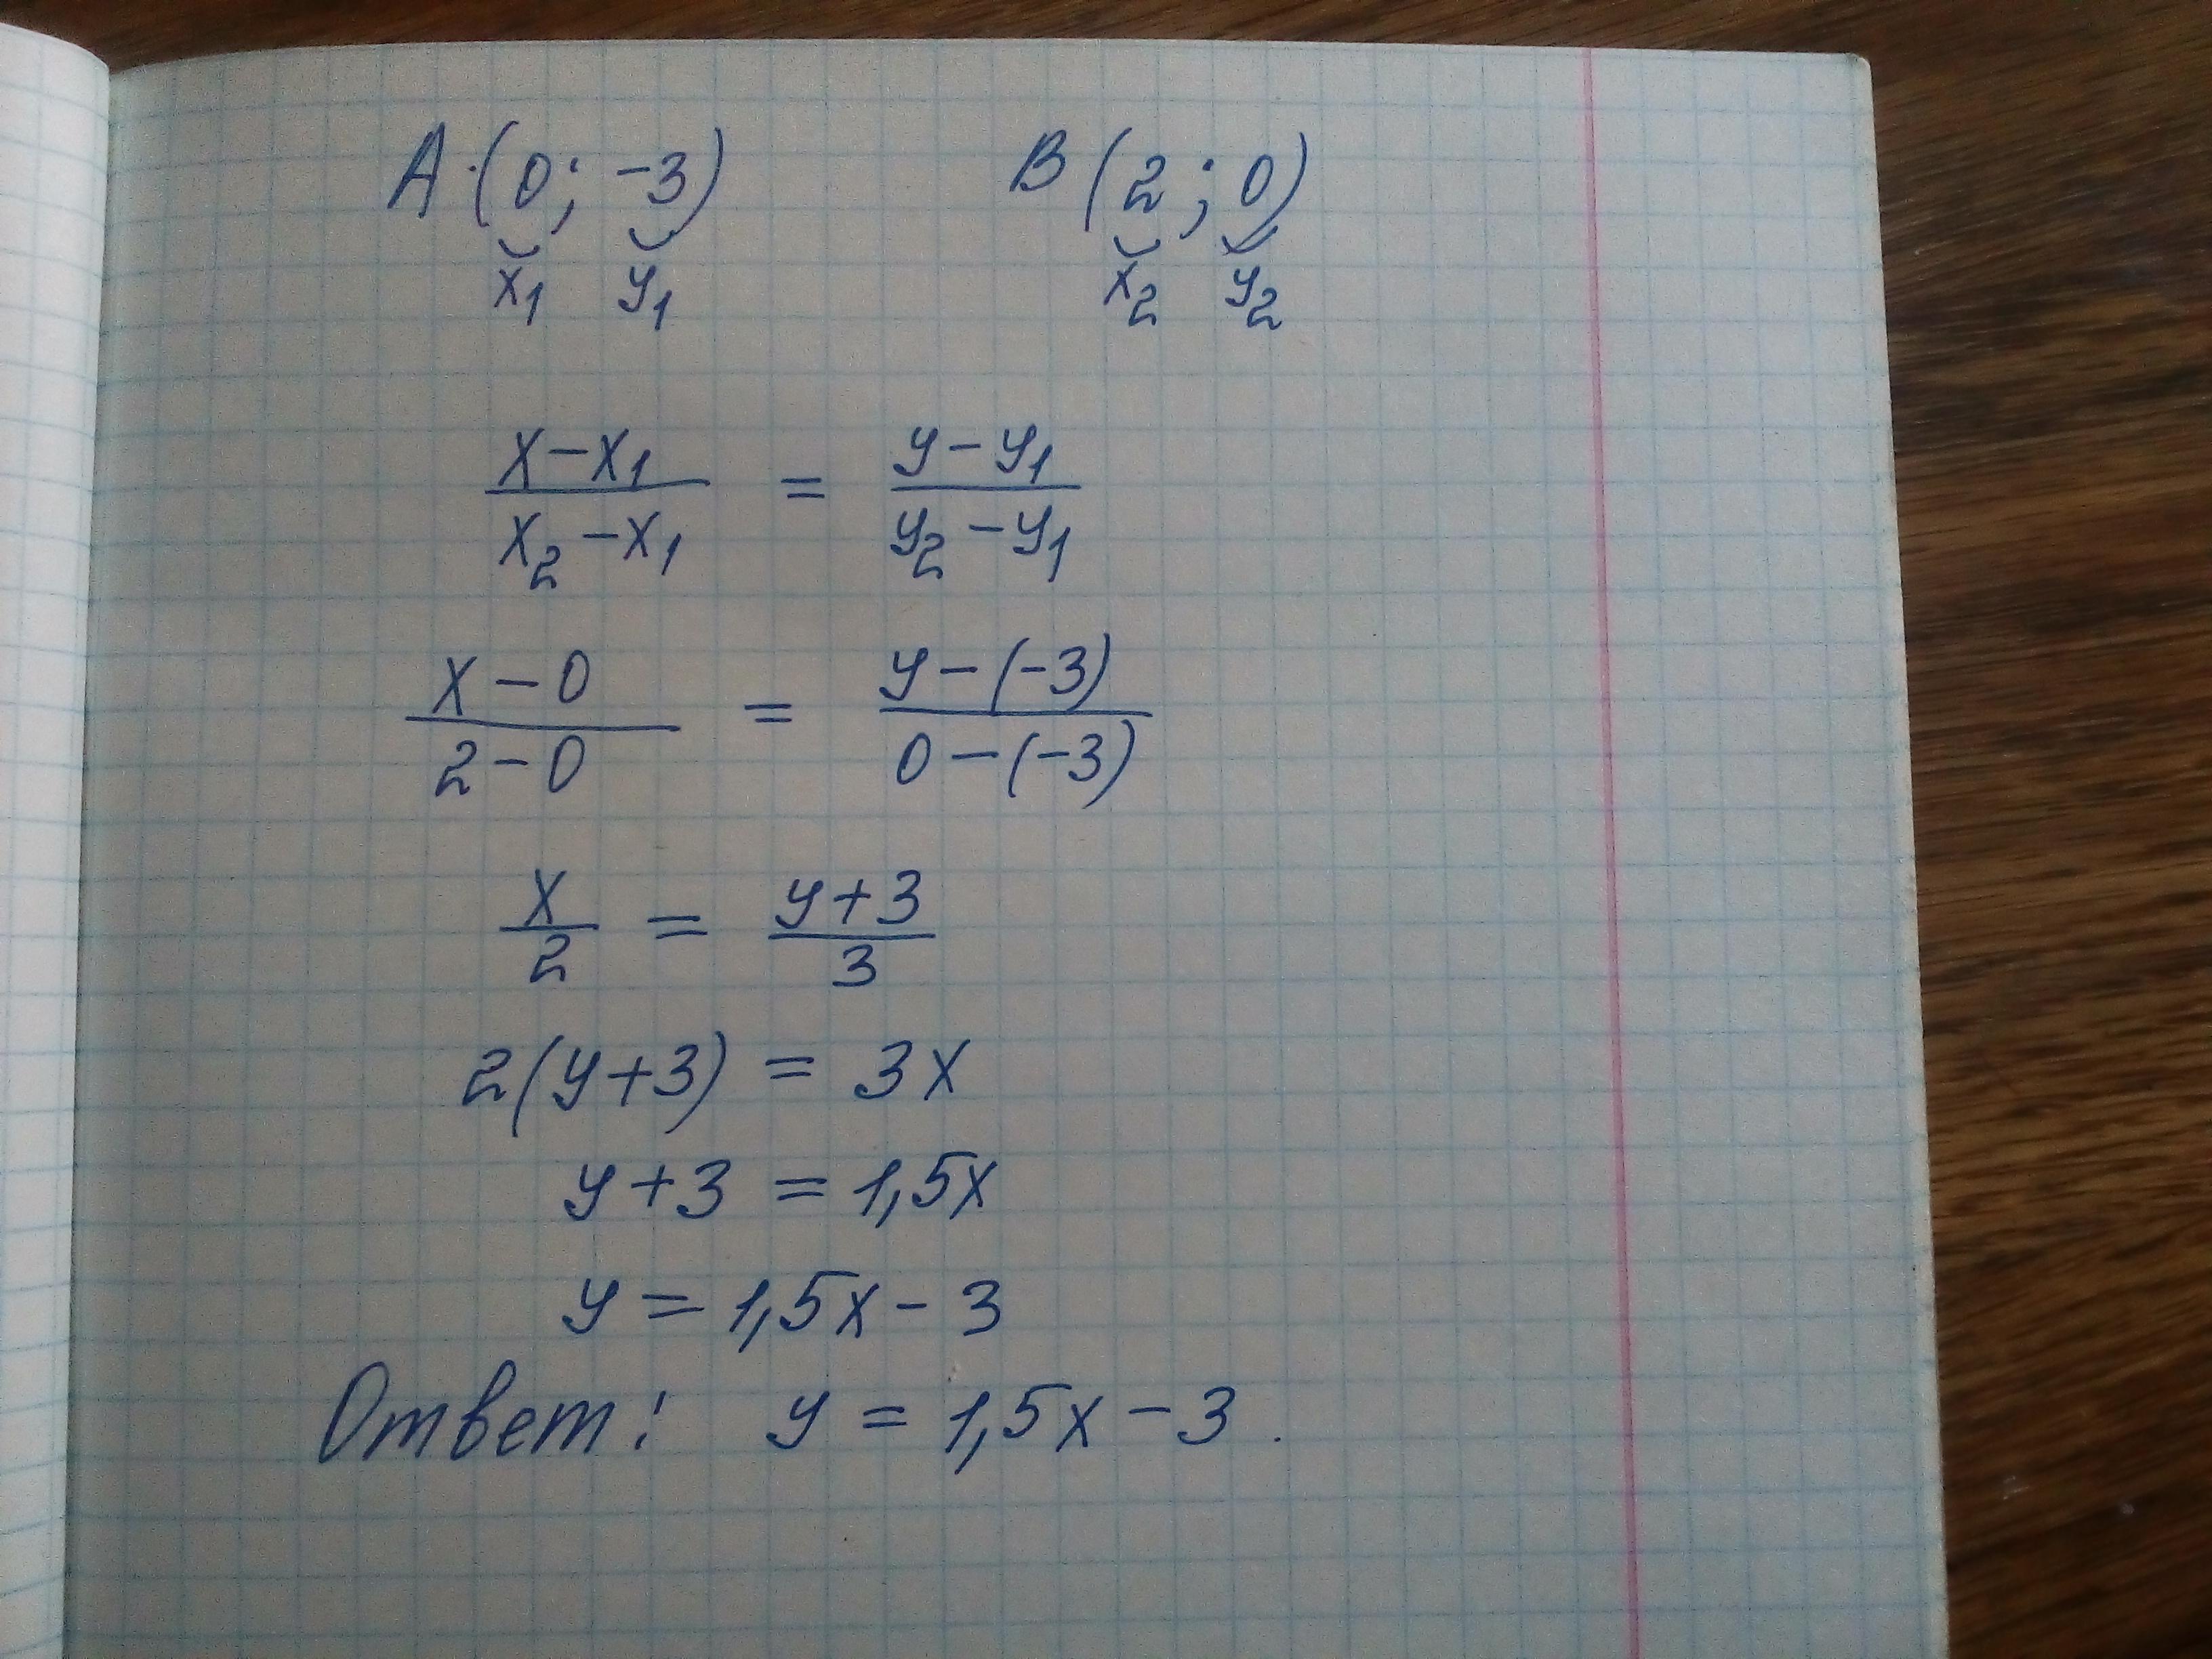 A (0; -3) B (2; 0)
x₁ y₁ x₂ y₂
(x-x₁)/(x₂-x₁) = (y-y₁)/(y₂-y₁)
(x-0)/(2-0) = (y-(-3))/(0-(-3))
x/2 = (y+3)/3
2(y+3) = 3x
y+3 = 1,5x
y = 1,5x - 3
Ответ: y = 1,5x - 3.